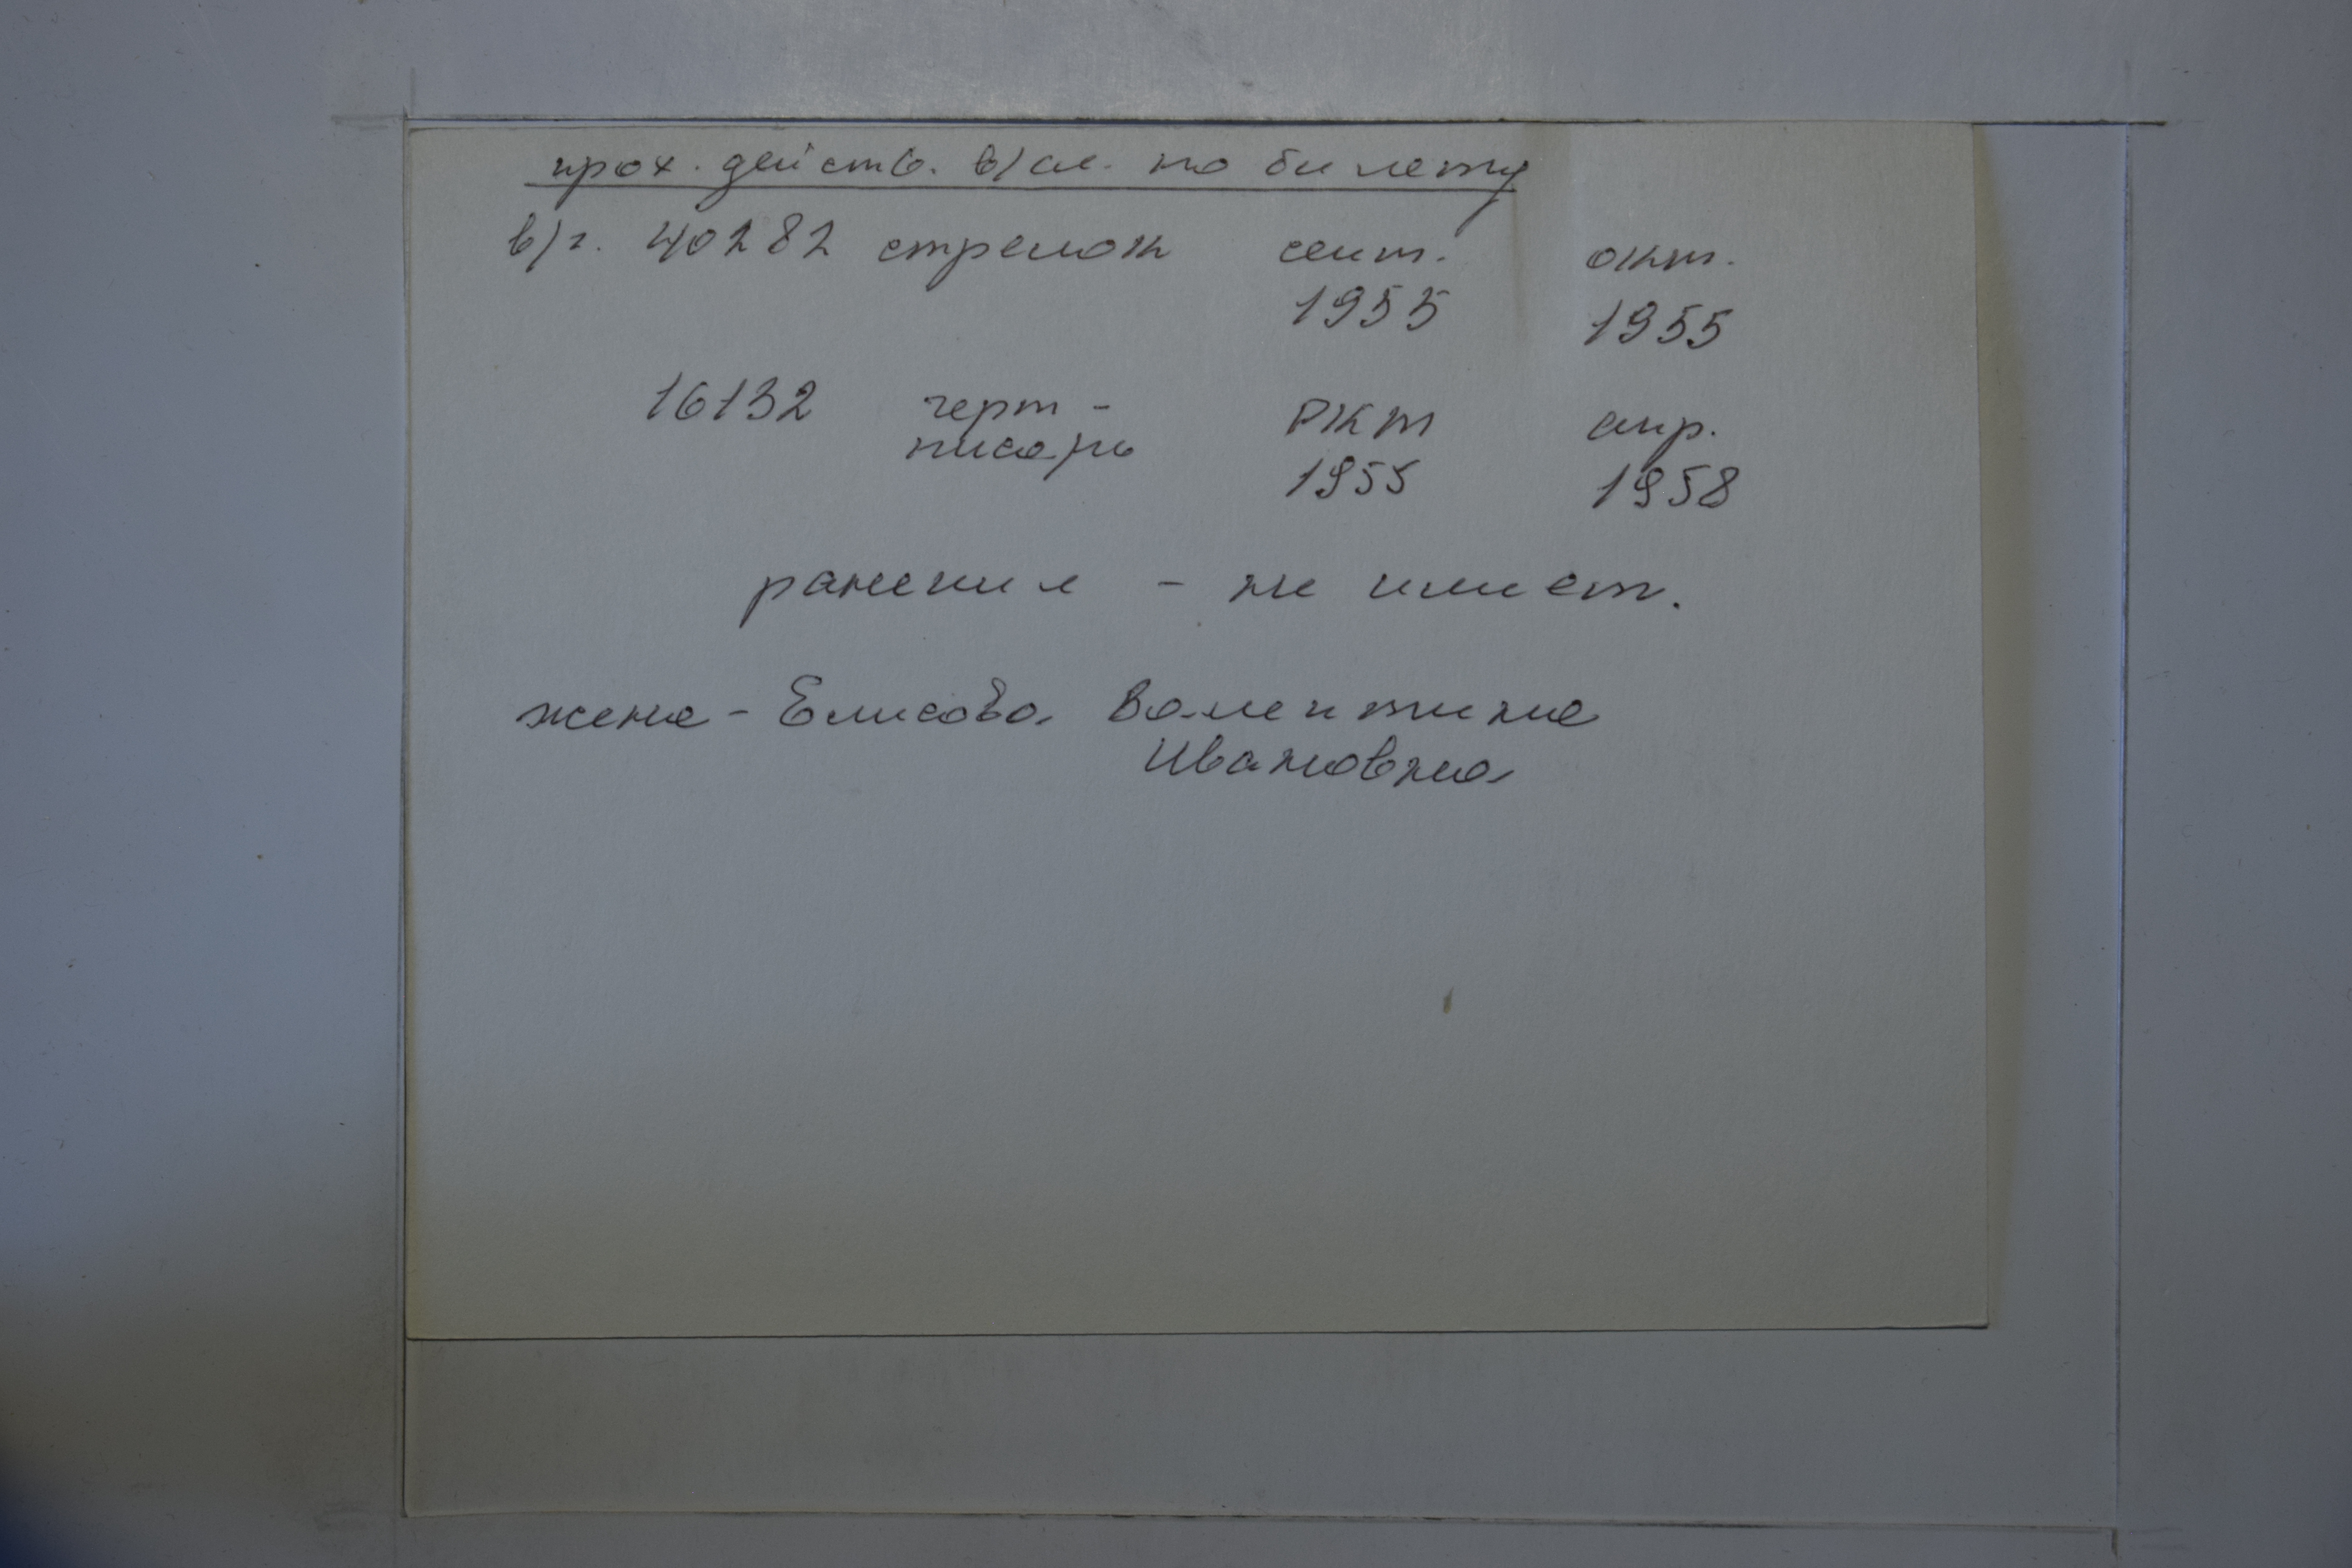 прох. действ. в/сл. по билету
в/ч. 40282 стрелок сент. окт.
1955 1955
16132 черт- окт апр.
писарь
1955 1958
ранения - не имеет.
жена - Елисова Валентина
Ивановна